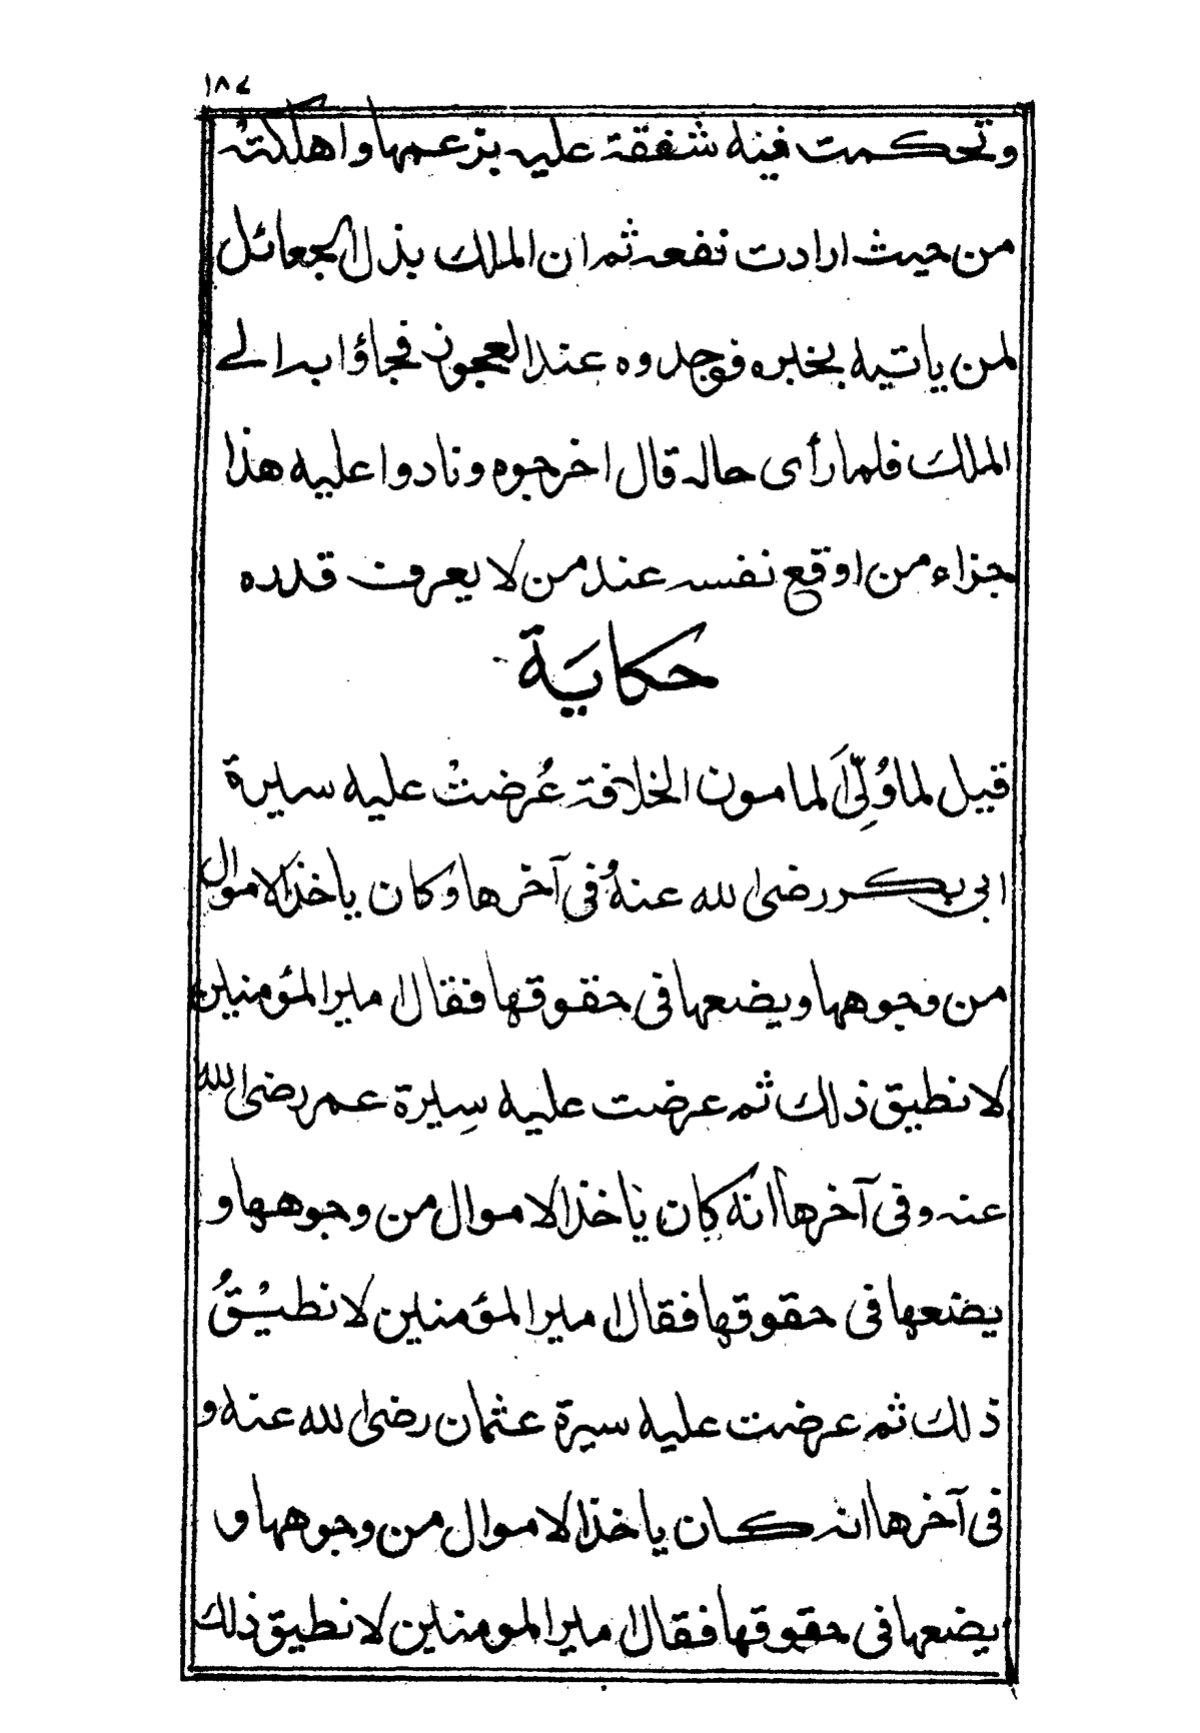 ١٨٧
وتحكمت فيه شفقة عليه بزعمها واهلكته
من حيث ارادت نفعه ثم ان الملك بذل الجعائل
لمن ياتيه بخبره فوجدوه عند العجوز فجاؤا به الے
الملك فلما رأى حاله قال اخرجوه ونادوا عليه هذا
جزاء من اوقع نفسه عند من لا يعرف قدره
حكاية
قيل لما وُلِّىَ المامون الخلافة عُرضتْ عليه سيرة
ابى بكر رضى الله عنهُ وفى آخرها وكان ياخذ الاموال
من وجوهها ويضعها فى حقوقها فقال امير المؤمنين
لا نطيق ذلك ثم عرضت عليه سِيرة عمر رضى الله
عنه وفى آخرها انه كان ياخذ الاموال من وجوهها و
يضعها فى حقوقها فقال امير المؤمنين لا نطيْقُ
ذلك ثم عرضت عليه سيرة عثمان رضى الله عنه و
فى آخرها انه كان ياخذ الاموال من وجوهها و
يضعها فى حقوقها فقال امير المومنين لا نطيق ذلك